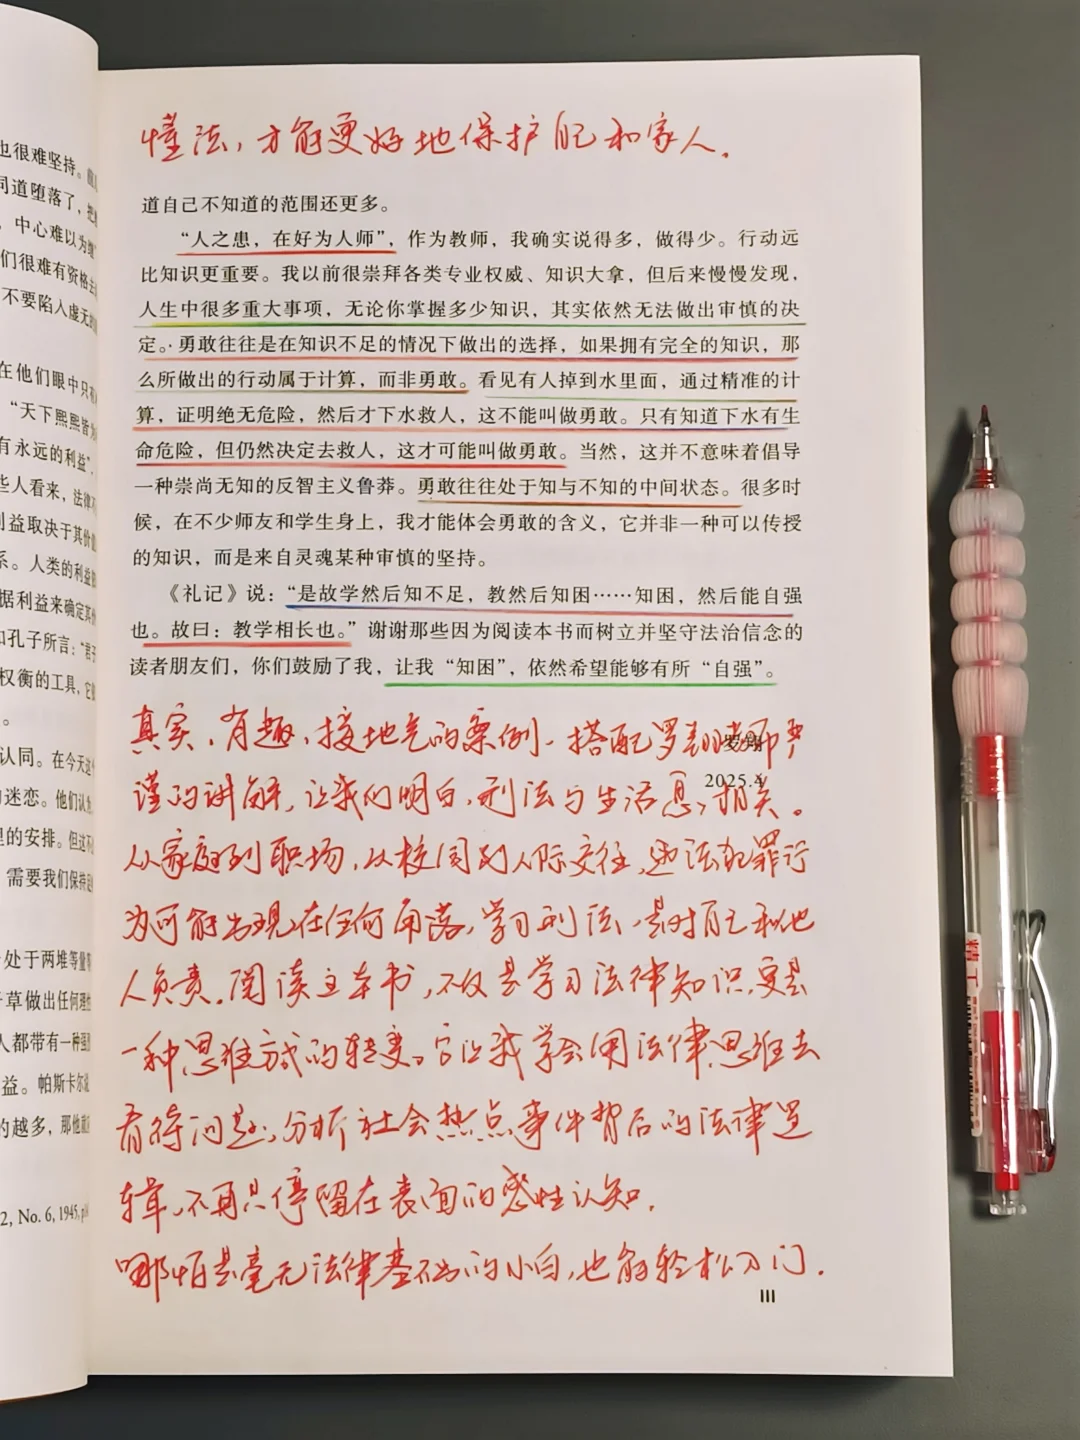 懂法，才能更好地保护自己和家人．
道自己不知道的范围还更多。
“人之患，在好为人师”，作为教师，我确实说得多，做得少。行动远
比知识更重要。我以前很崇拜各类专业权威、知识大拿，但后来慢慢发现，
人生中很多重大事项，无论你掌握多少知识，其实依然无法做出审慎的决
定。勇敢往往是在知识不足的情况下做出的选择，如果拥有完全的知识，那
么所做出的行动属于计算，而非勇敢。看见有人掉到水里面，通过精准的计
算，证明绝无危险，然后才下水救人，这不能叫做勇敢。只有知道下水有生
命危险，但仍然决定去救人，这才可能叫做勇敢。当然，这并不意味着倡导
一种崇尚无知的反智主义鲁莽。勇敢往往处于知与不知的中间状态。很多时
候，在不少师友和学生身上，我才能体会勇敢的含义，它并非一种可以传授
的知识，而是来自灵魂某种审慎的坚持。
《礼记》说：“是故学然后知不足，教然后知困……知困，然后能自强
也。故曰：教学相长也。”谢谢那些因为阅读本书而树立并坚守法治信念的
读者朋友们，你们鼓励了我，让我“知困”，依然希望能够有所“自强”。
罗翔
2025.4
真实、有趣、接地气的案例、搭配罗翔老师严
谨的讲解，让我们明白，刑法与生活息息相关。
从家庭到职场，从校园到人际交往，违法犯罪行
为可能出现在任何角落，学习刑法，是对自己和他
人负责．阅读这本书，不仅是学习法律知识，更是
一种思维方式的转变。它让我学会用法律思维去
看待问题，分析社会热点事件背后的法律逻
辑，不再只停留在表面的感性认知．
哪怕是毫无法律基础的小白，也能轻松入门．
III
也很难坚持。
同道堕落了，
中心难以为继
们很难有资格去
不要陷入虚无
在他们眼中只有
“天下熙熙皆为
有永远的利益”，
些人看来，法律不
利益取决于其价值
系。人类的利益
据利益来确定其
如孔子所言：“君子
权衡的工具，它
。
认同。在今天这个
的迷恋。他们认
里的安排。但这不
需要我们保持
处于两堆等量
干草做出任何理
人都带有一种强
益。帕斯卡尔
的越多，那他
2, No. 6, 1945, p
精工